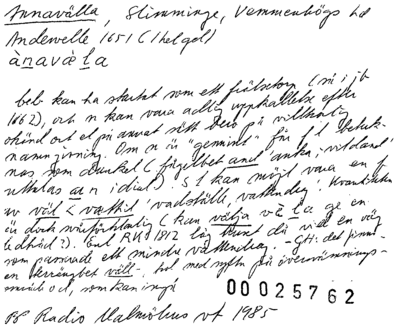 Annavälla, Slimminge, Vemmenhögs hd
Andewelle 1651 (1 hel gd)
ànavæ̀la
beb. kan ha startat som ett frälsetorp (så i jb
1662), och n kan vara adlig uppkallelse efter
okänd ort el på annat sätt bero på villkorlig
namngivning. Om n är "genuint" för f l betrak-
tas som dunkel (fågelbet and 'anka, vildand'
uttalas an i dial). S l kan möjl vara en f
av väl < 'vadställe, vattendrag'. Kvantiteten
är dock svårförklarlig (kan välja ge en
ledtråd?). Enl RK 1812 låg vid en väg
som passerade ett mindre vattendrag. - GH: det finns
en terrängbet väll-, hol med syftn på översvämnings-
mark od, som kan ingå
00025762
PP Radio Malmöhus vt 1985